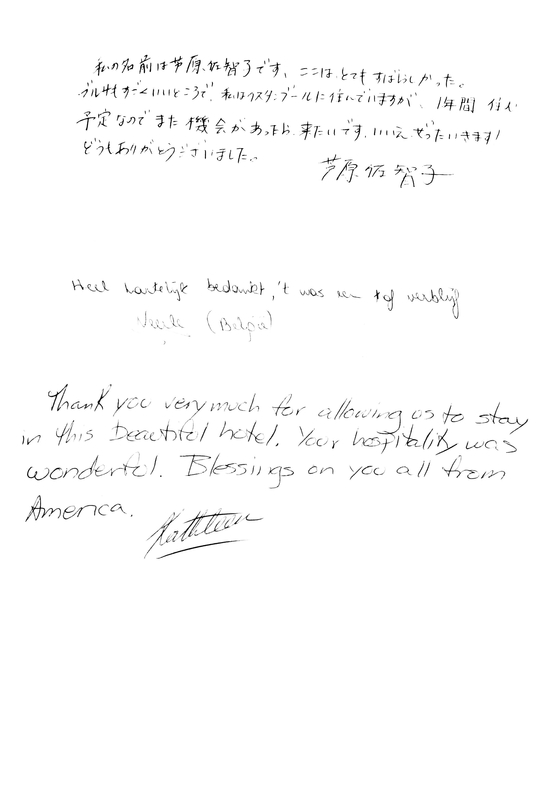 私の名前は芦原佐智子です。ここはとてもすばらしかった。
ブルサもすごくいいところで、私はイスタンブールに住んでいますが、1年間 住む
予定なのでまた機会があったら来たいです。いいえ ぜったいきます!
どうもありがとうございました。
芦原佐智子
Heel hartelijk bedankt, 't was een tof verblijf
(Belgie)
Thank you very much for allowing us to stay
in this Beautiful hotel. Your hospitality was
wonderful. Blessings on you all from
America.
Kathleen